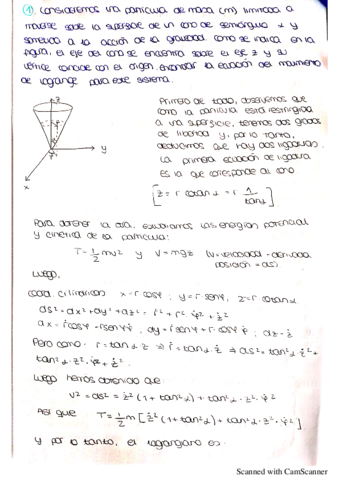 ① Consideremos una partícula de masa (m) limitada a
moverse sobre la superficie de un cono de semiángulo α y
sometida a la acción de la gravedad, como se indica en la
figura, el eje del cono se encuentra sobre el eje z y su
vértice coincide con el origen. Encontrar la ecuación del movimiento
de lagrange para este sistema.
z
y
x
Primero de todo, observemos que
como la partícula está restringida
a una superficie, tenemos dos grados
de libertad y, por lo tanto,
deducimos que hay dos ligaduras.
La primera ecuación de ligadura
es la que corresponde al cono
[z = r cotan α = r 1/tan α]
Para obtener la otra, estudiamos las energías potencial
y cinética de la partícula:
T = 1/2 mv² y V = mgz (v = velocidad = derivada
posición = ds)
Luego,
coord. cilíndricas x = r cosφ ; y = r senφ, z = r cotan α
ds² = dx² + dy² + dz² = ṙ² + r² φ̇² + ż²
dx = ṙcosφ - rsenφ φ̇, dy = ṙ senφ + r cosφ φ̇ ; dz = ż
Pero como: r = tan α z ⇒ ṙ = tan α ż ⇒ ds² = tan² α ż² +
tan² α · z² · φ̇² + ż².
Luego hemos obtenido que:
v² = ds² = ż² (1 + tan² α) + tan² α · z² · φ̇²
Así que T = 1/2 m [ż² (1 + tan² α) + tan² α · z² · φ̇²]
Y por lo tanto, el lagrangiano es:
Scanned with CamScanner